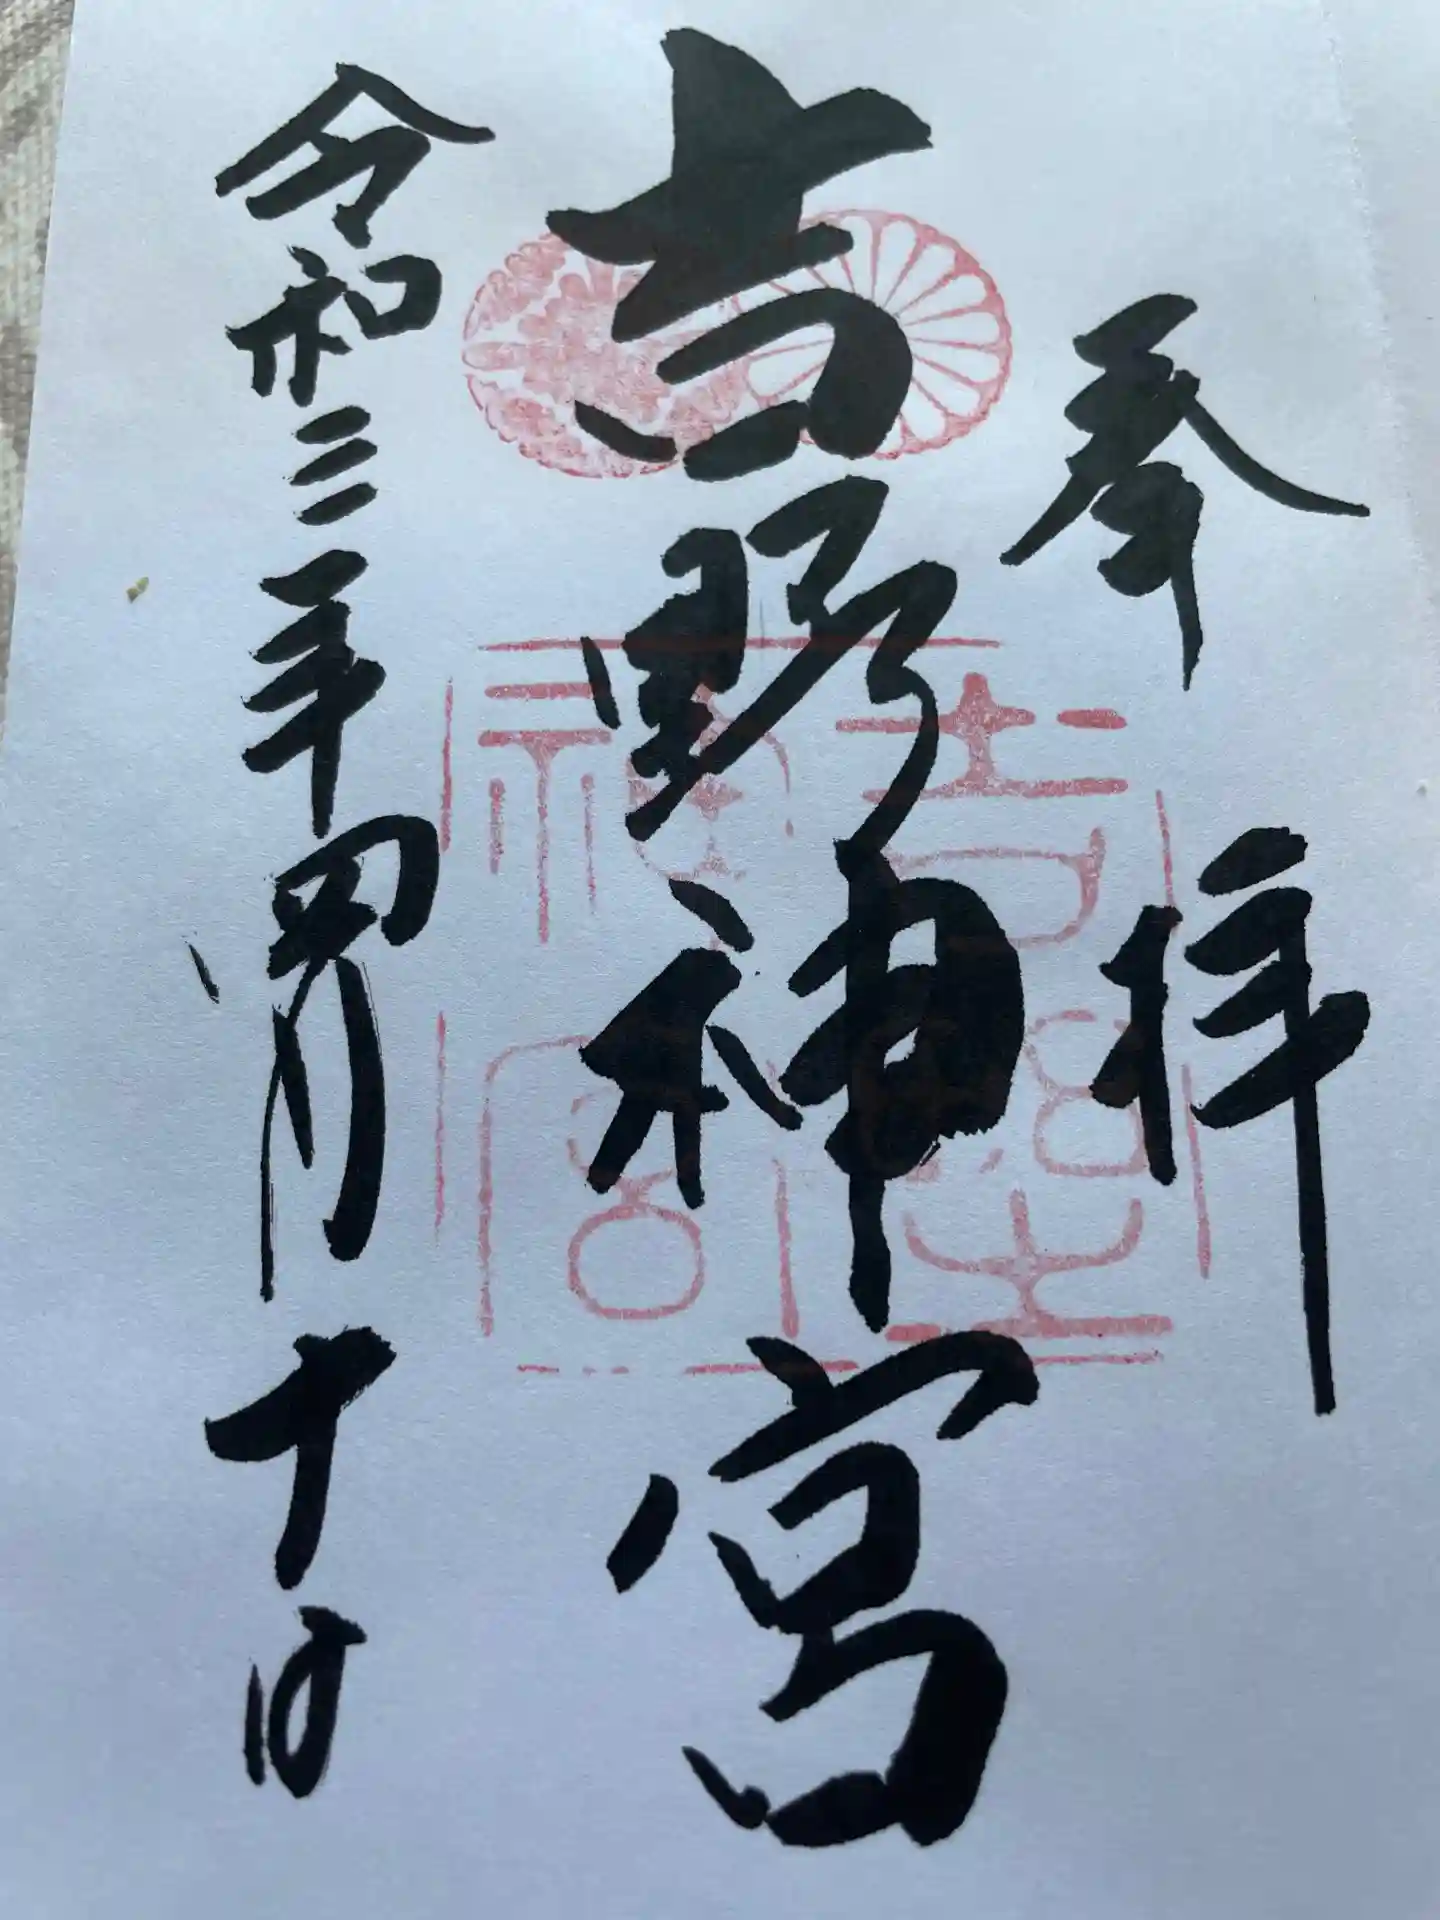 奉拝
吉野神宮
令和三年四月十日
吉野神宮